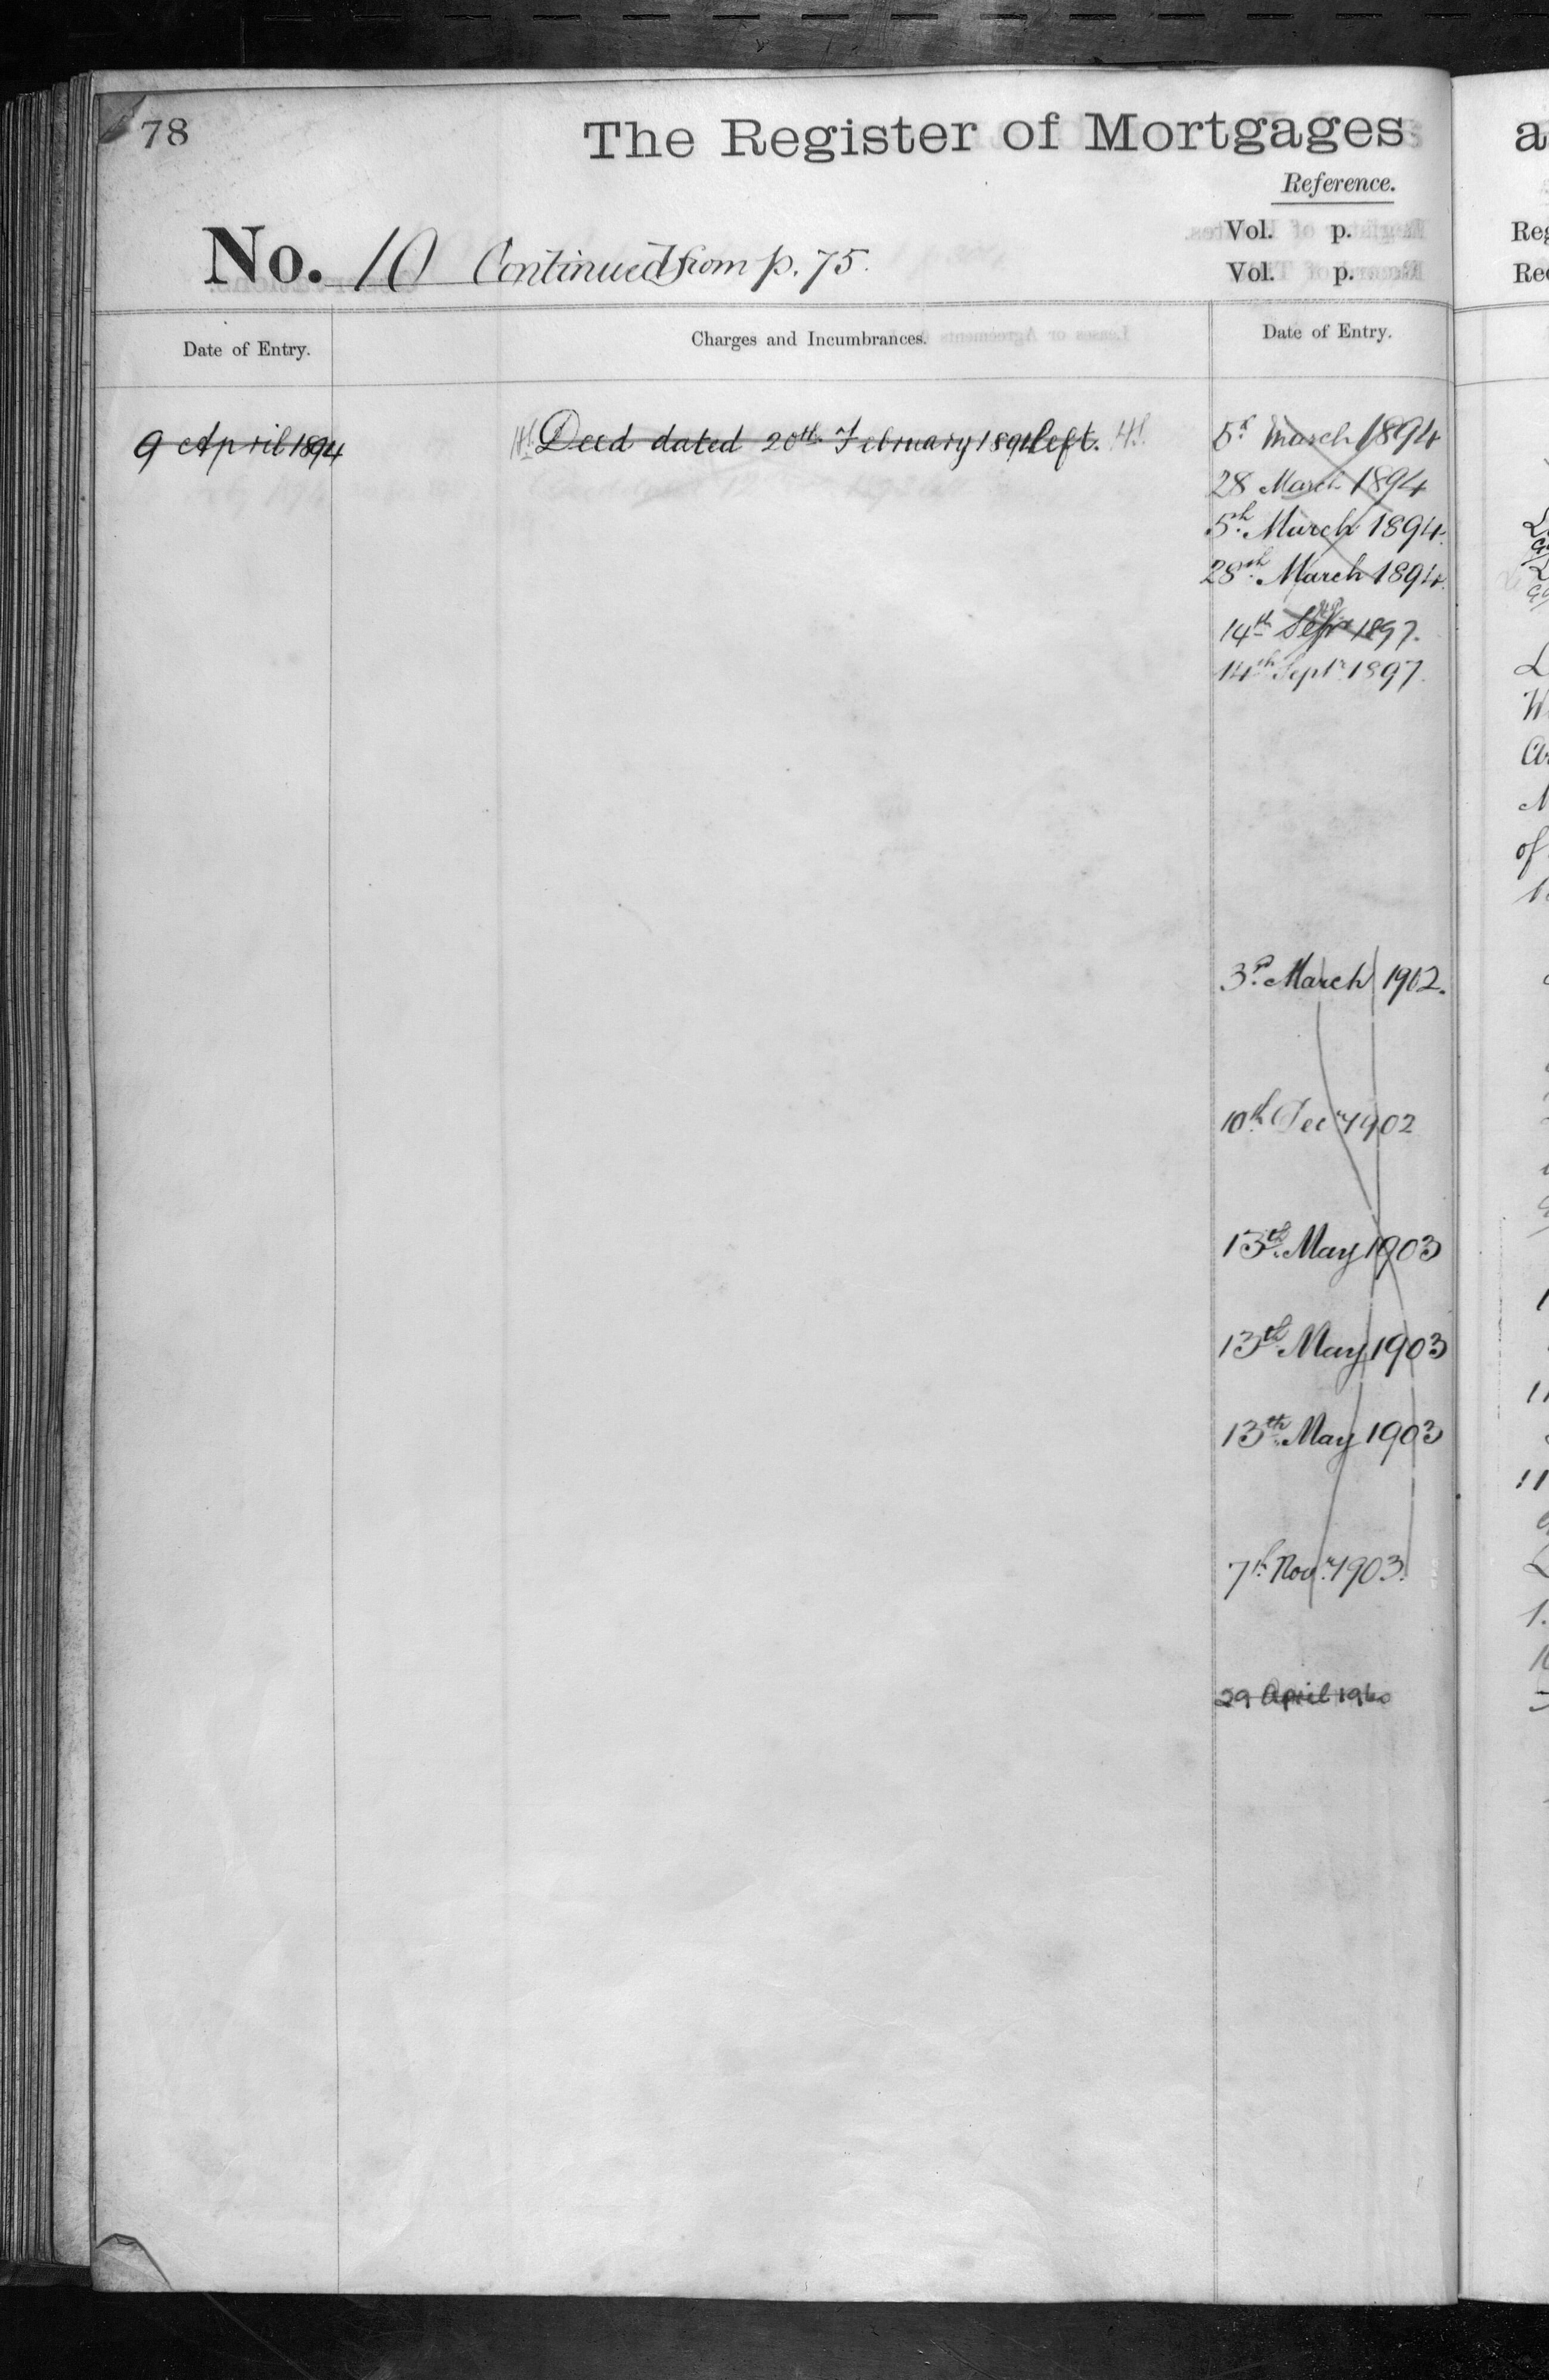 78
The Register of Mortgages
Reference.
Vol. p.
No. 10 Continued from p. 75.
Vol. p.
Date of Entry.
Charges and Incumbrances.
Date of Entry.
9 April 1894
Deed dated 20th February 1894 left.
5th March 1894
28 March 1894
5th March 1894.
28th March 1894.
14th Sepr 1897.
14th Septr 1897.
3rd March 1902.
10th Decr 1902
13th May 1903
13th May 1903
13th May 1903
7th Novr 1903.
29 April 1960